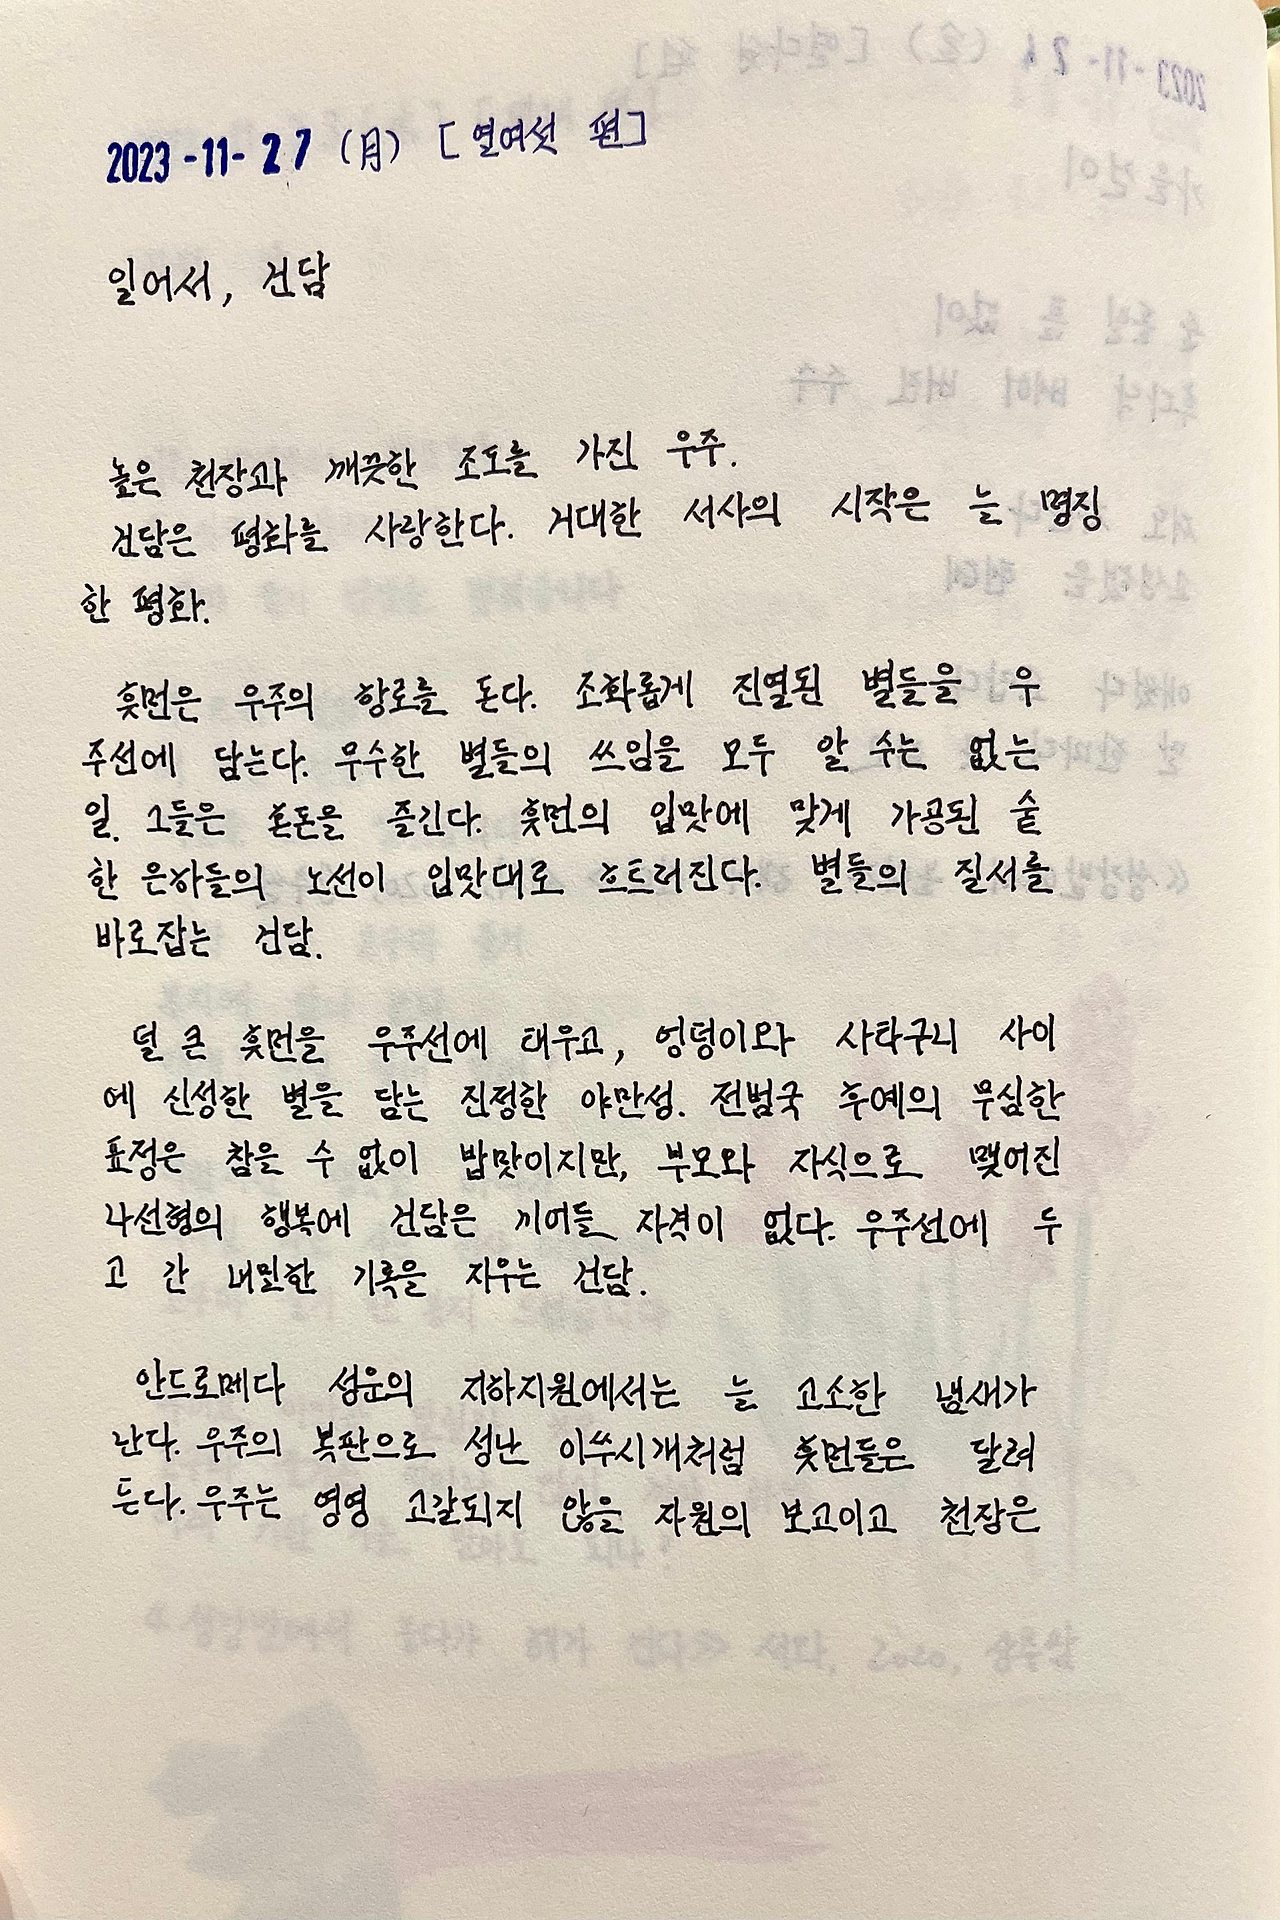 2023-11-27 (月) [열여섯 편]
일어서, 건담
높은 천장과 깨끗한 조도를 가진 우주.
건담은 평화를 사랑한다. 거대한 서사의 시작은 늘 명징
한 평화.
흣먼은 우주의 항로를 돈다. 조화롭게 진열된 별들을 우
주선에 담는다. 무수한 별들의 쓰임을 모두 알 수는 없는
일. 그들은 혼돈을 즐긴다. 흣먼의 입맛에 맞게 가공된 숱
한 은하들의 노선이 입맛대로 흐트러진다. 별들의 질서를
바로잡는 건담.
덜 큰 흣먼을 우주선에 태우고, 엉덩이와 사타구니 사이
에 신성한 별을 담는 진정한 야만성. 전범국 후예의 무심한
표정은 참을 수 없이 밥맛이지만, 부모와 자식으로 맺어진
나선형의 행복에 건담은 끼어들 자격이 없다. 우주선에 두
고 간 내밀한 기록을 지우는 건담.
안드로메다 성운의 지하지원에서는 늘 고소한 냄새가
난다. 우주의 복판으로 성난 이쑤시개처럼 흣먼들은 달려
든다. 우주는 영영 고갈되지 않을 자원의 보고이고 천장은